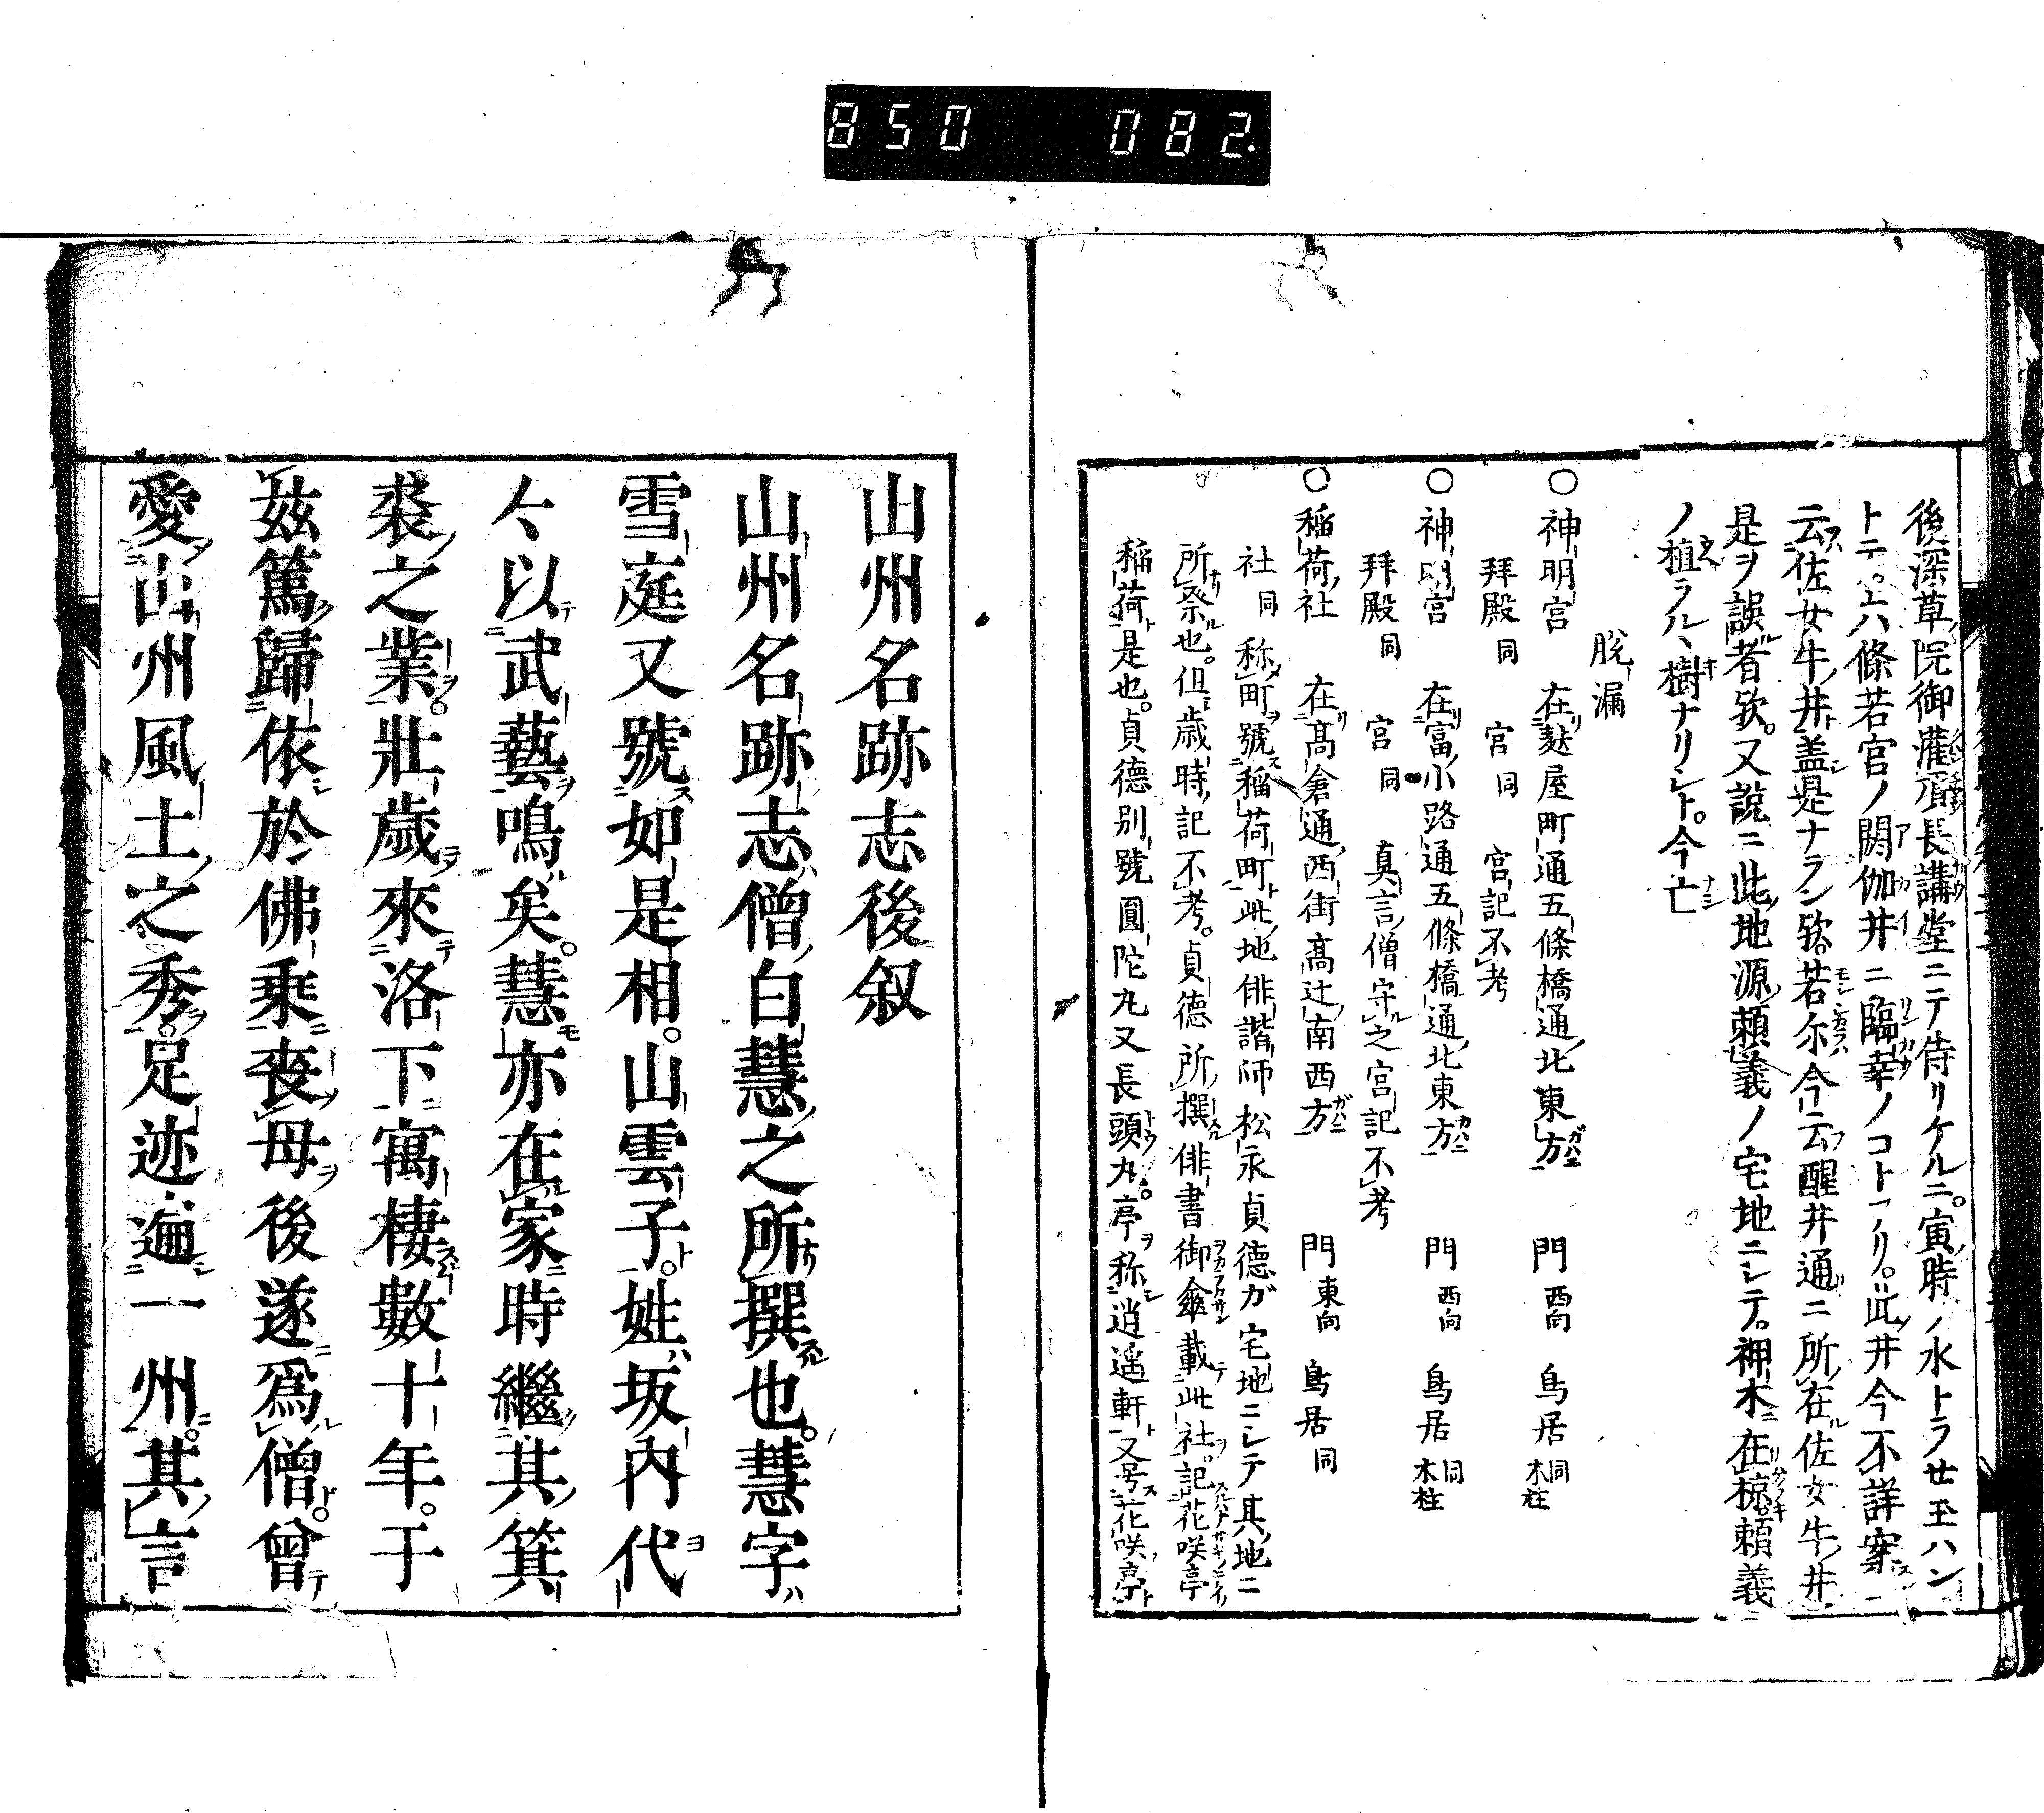 850 082
後深草院御灌頂長講堂ニテ侍リケルニ。寅時ノ水トラせ玉ハン
トテ。六條若宮ノ閼伽井ニ臨幸ノコトアリ。此井今不詳案ニ
云佐女牛井盖是ナラン欤。若尓今云醒井通ニ所在佐女牛井
是ヲ誤者欤。又説ニ此地源頼義ノ宅地ニシテ。神木在椋頼義
ノ植ラルヽ樹ナリシト。今亡
脱漏
○神明宮 在麩屋町通五條橋通北東方 門西向 鳥居同木柱
拜殿同 宮同 宮記不考
○神明宮 在富小路通五條橋通北東方 門西向 鳥居同木柱
拜殿同 宮同 真言僧守之宮記不考
○稲荷社 在髙倉通西街髙辻南西方 門東向 鳥居同
社同 称町號稲荷町此地俳諧師松永貞德ガ宅地ニシテ其地ニ
所祭也。但歳時記不考。貞德所撰俳書御傘載此社記花咲亭
稲荷是也。貞德別號圓陀丸又長頭丸。亭称逍遥軒又号花咲亭
山州名跡志後叙
山州名跡志僧白慧之所撰也。慧字
雪庭又號如是相。山雲子。姓坂内代
々以武藝鳴矣。慧亦在家時繼其箕
裘之業。壯歲來洛下寓棲數十年。于
茲篤歸依於佛乘喪母後遂爲僧。曾
愛山州風土之秀。足迹遍一州。其言